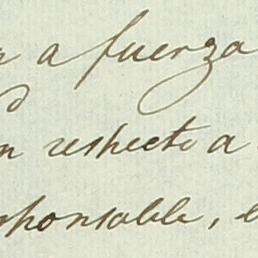 a fuerza
respecto a
sponsable, e